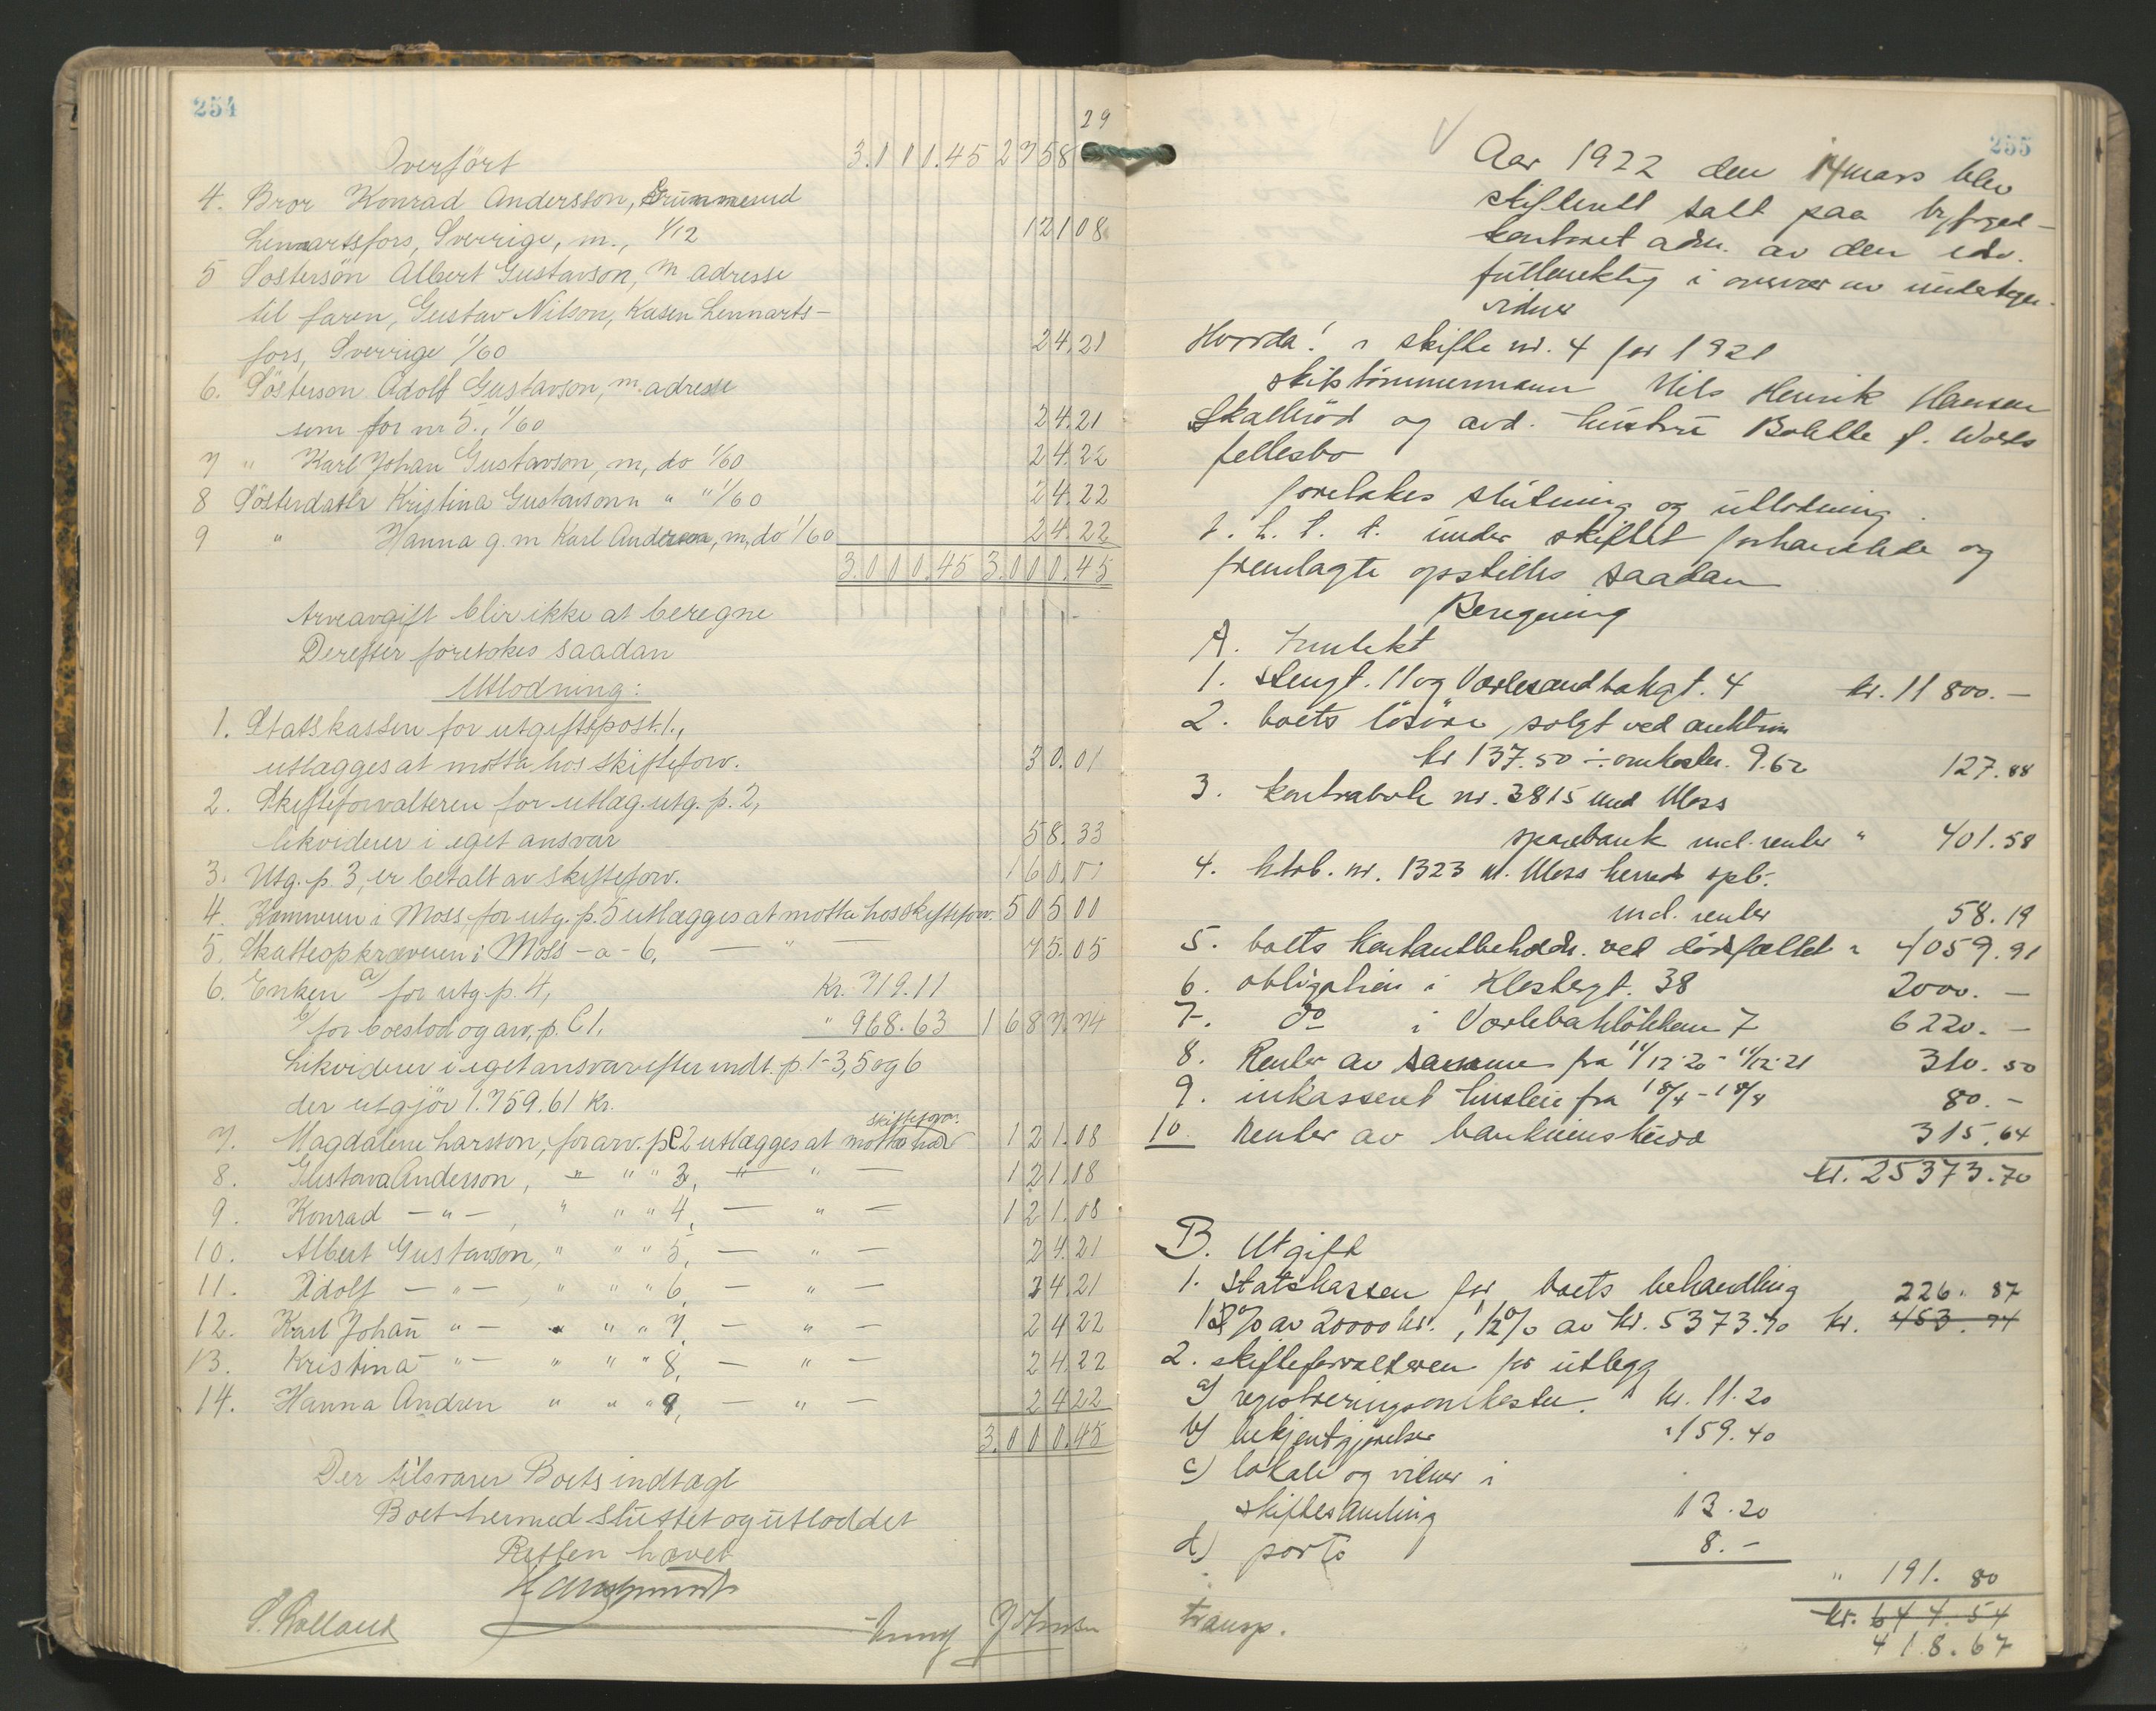 254
29
Overført 3.000.45 2758
4. Bror Konrad Andersson,
Lennartsfors, Sverrige, m., 1/12 121 08
5 Søstersøn Albert Gustavson, m adresse
til faren, Gustav Nilson, Kasen Lennarts-
fors, Sverrige 1/60 24.21
6. Søsterson Adolf Gustavson, m. adresse
som for nr 5., 1/60 24.21
7 " Karl Johan Gustavson, m, do 1/60 24.22
8 Søsterdatter Kristina Gustavsonn " " 1/60 24.22
9 " Hanna g. m Karl Anderson, m, do 1/60 24.22
3.000.45 3.000.45
Arveavgift blir ikke at beregne
Derefter foretokes saadan
Utlodning:
1. Statskassen for utgiftspost. 1.,
utlægges at motta hos skifteforv. 30.01
2. Skifteforvalteren for utlæg. utg. p. 2,
likviderer i eget ansvar 58.33
3. Utg. p 3, er betalt av skifteforv. 160.00
4. Kæmneren i Moss, for utg. p. 5 utlægges at motta hos skifteforv. 505 00
5. Skatteopkræveren i Moss - a - 6, — " — 75.05
6. Enken a) for utg. p. 4, Kr. 719.11
b) for boeslod og arv, p. C 1. " 968.63 1687.74
Likviderer i eget ansvar efter indt. p. 1-3, 5 og 6
der utgjør 1.759.61 Kr.
skifteforv.
7. Magdalene Larsson, for arv. p C 2 utlægges at motta hos 121.08
8. Gustava Andersson, — " " 3, — " — 121.08
9. Konrad — " —, " " " 4, — " — 121.08
10. Albert Gustavson, " " " 5, — " — 24.21
11. Adolf — " —, " " " 6, — " — 24.21
12. Karl Johan " — " " " 7, — " — 24 22
13. Kristina " — " " " 8, — " — 24.22
14. Hanna Andren " " " 9, — " — 24 22
3.000.45
Der tilsvarer Boets indtægt
Boet hermed sluttet og utloddet
Retten hævet
S. Rolland
Jenny Johnsen
255
Aar 1922 den 14 mars blev
skifterett satt paa byfoged-
kontoret adm. av den edsv.
fullmektig i overvær av undertegn.
vidner
Hvorda: i skifte nr. 4 for 1921
skibstømmermann Nils Henrik Hansen
Skallerød og avd. hustru Bolette f. Wolds
fellesbo
foretokes slutning og utlodning
I. h. t. d. under skiftet forhandlede og
fremlagte opstilles saadan
Beregning
A. Inntekt
1. Stengt. 11 og Vorlesandbakgt. 4 kr. 11 800. —
2. boets løsøre, solgt ved auktion
kr 137.50 ÷ omkostn. 9.62 127.88
3. kontrabok nr. 3815 med Moss
sparebank incl. renter " 401.58
4. ktrb. nr. 1323 m. Moss herreds spb.
incl. renter 58.19
5. boets kontantbeholdn. ved dødsfallet " 4059.91
6. obligation i Klostergt. 38 2000. —
7. do i Vorlebakløkken 7 6220. —
8. Renter av samme fra 11/12-20 - 11/12-21 310.50
9. inkasseret husleie fra 80. —
10 Renter av bankinnskudd 315.64
kr. 25373.70
B. Utgift
1. Statskassen for boets behandling 226. 87
1% av 20000 kr., 1/2% av kr. 5373.70 kr. 453.74
2. skifteforvalteren for utlegg
a) registreringsomkostn. kr. 11.20
b) bekjentgjørelser " 159.40
c) lokale og vitner i
skiftesamling 13.20
d) porto 8. —
" 191. 80
transp. kr. 644.54
418.67